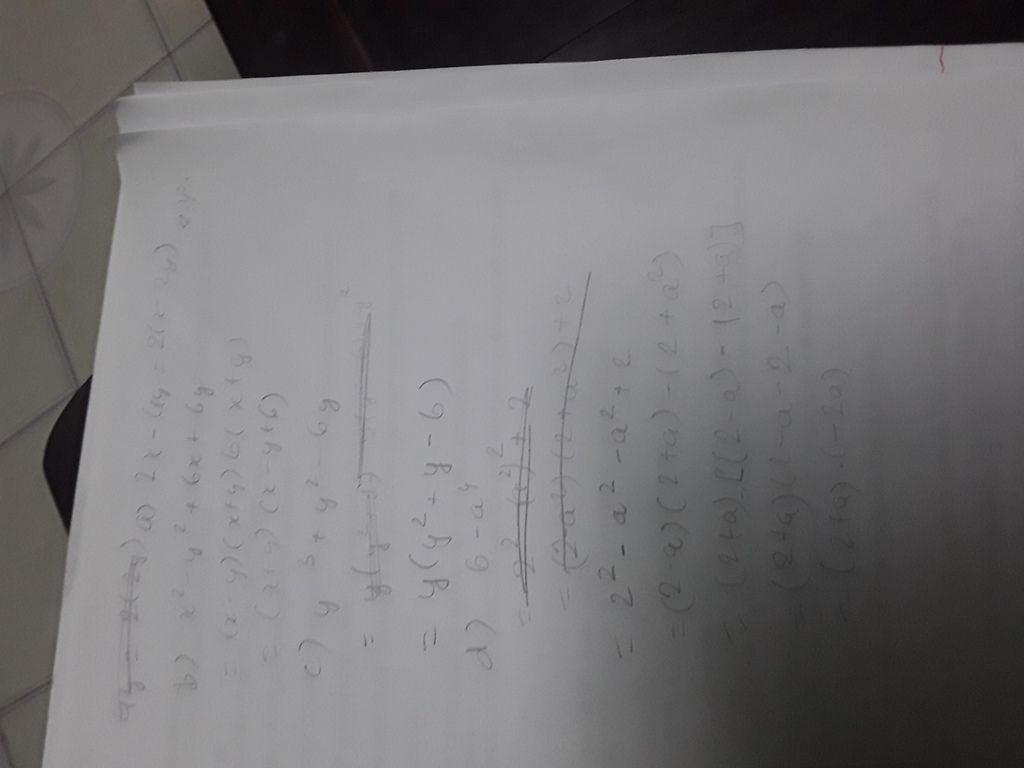 a) 2x - 4y = 2(x - 2y)
b) x² - y² + 6x + 6y
= (x - y)(x + y) 6(x + y)
= (x + y) (x - y + 6)
c) y³ + y² - 6y
=
= y(y² + y - 6)
d) 6 - a⁴
= 2² + 2
= (2 - a²)(2 + a²) + 2
= 2² - a² - a² + 2
= (2 - a)(2 + a) - (2 + a²)
= (2 + a) [(2 - a) - (2 + a)]
= (2 + a)(2 - a - 2 - a)
= (2 + a) . (- 2a)